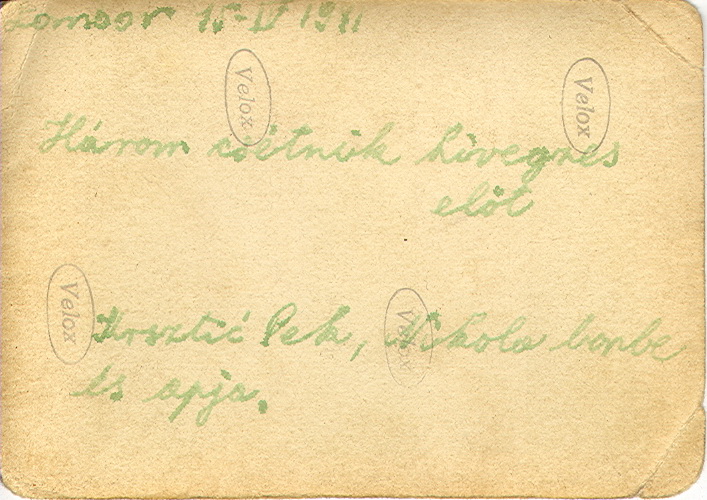 Zombor 15-IV 1941
Velox
Velox
Három csétnik kivegnés
elöt
Velox
Velox
Krsztić Pek, Nikola bonbe
és apja.